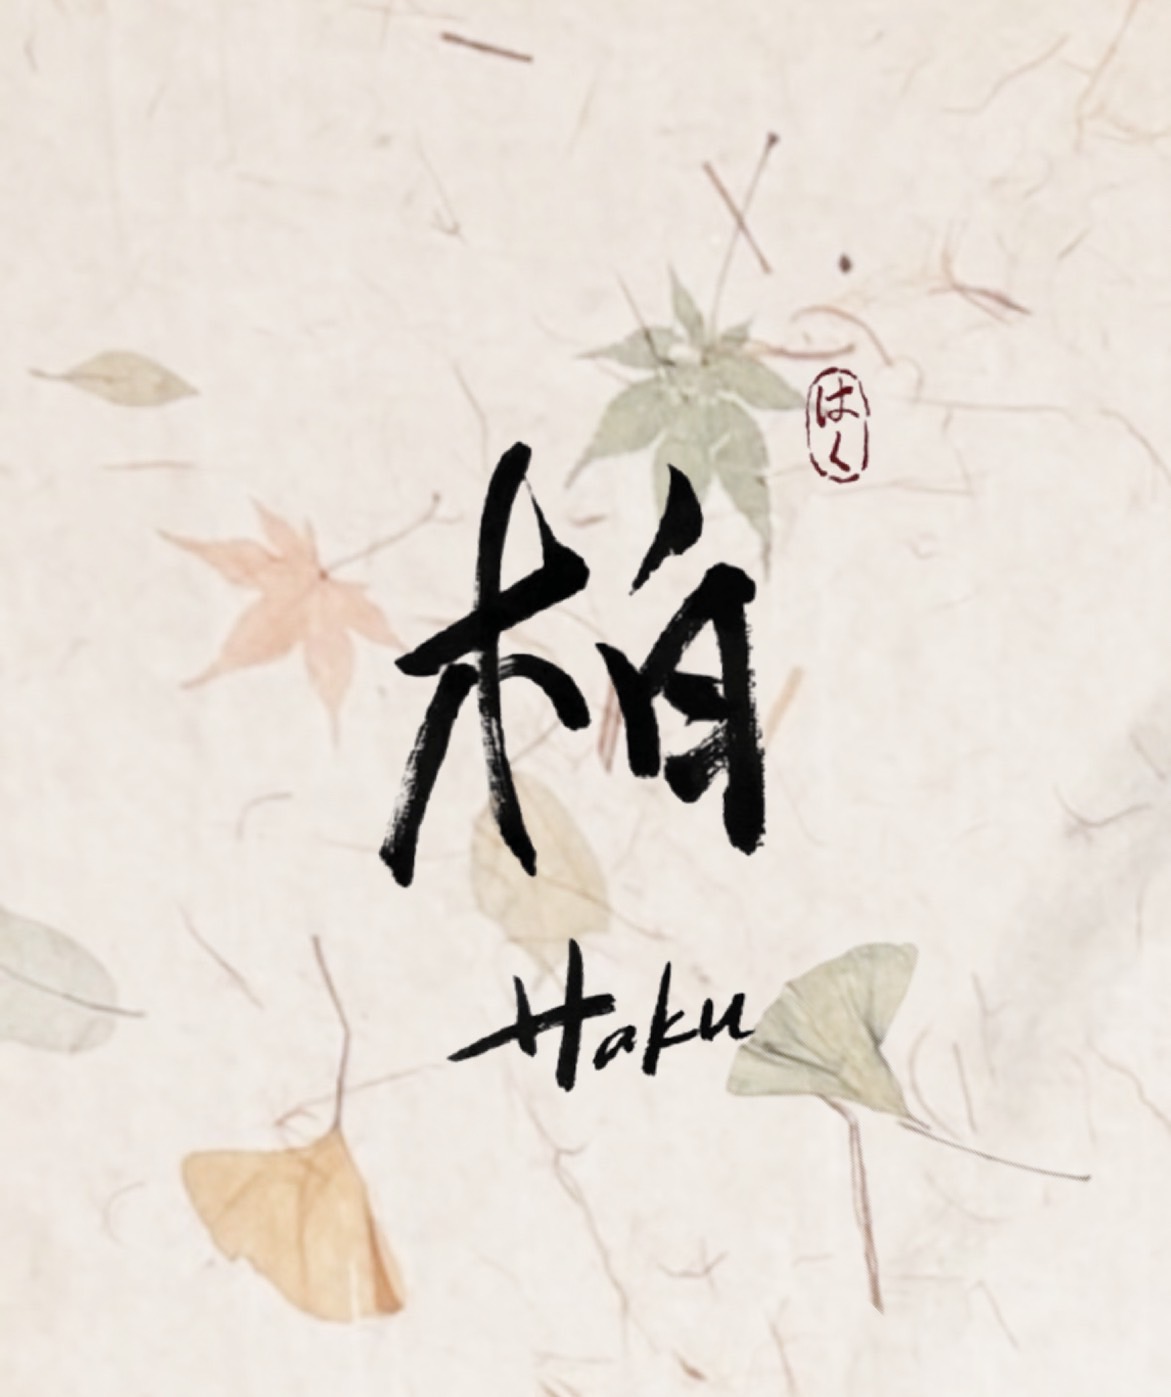 はく
柏
Haku